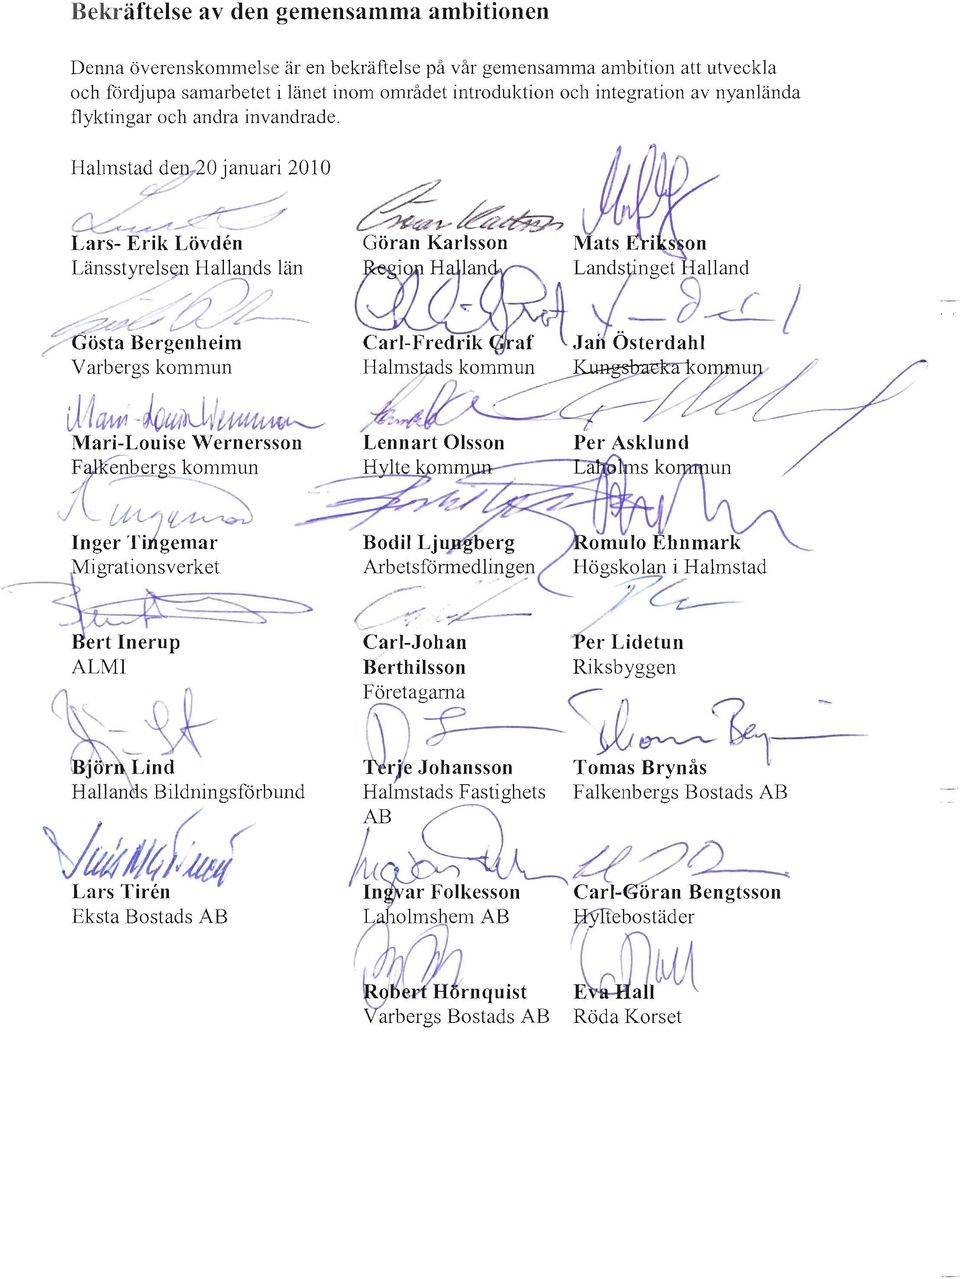 Bekräftelse av den gemensamma ambitionen
Denna överenskommelse är en bekräftelse på vår gemensamma ambition att utveckla
och fördjupa samarbetet i länet inom området introduktion och integration av nyanlända
flyktingar och andra invandrade.
Halmstad den 20 januari 2010
Göran Karlsson
Lars- Erik Lövdén Göran Karlsson Mats Eriksson
Länsstyrelsen Hallands län Region Halland Landstinget Halland
Gösta Bergenheim Carl-Fredrik Graf Jan Österdahl
Varbergs kommun Halmstads kommun Kungsbacka kommun
Mari-Louise Wernersson
Mari-Louise Wernersson Lennart Olsson Per Asklund
Falkenbergs kommun Hylte kommun Laholms kommun
Inger Tingemar Bodil Ljungberg Romulo Ehnmark
Migrationsverket Arbetsförmedlingen Högskolan i Halmstad
Bert Inerup Carl-Johan Per Lidetun
ALMI Berthilsson Riksbyggen
Företagarna
Björn Lind Terje Johansson Tomas Brynås
Hallands Bildningsförbund Halmstads Fastighets Falkenbergs Bostads AB
AB
Lars Tirén Ingvar Folkesson Carl-Göran Bengtsson
Eksta Bostads AB Laholmshem AB Hyltebostäder
Robert Hörnquist Eva Hall
Varbergs Bostads AB Röda Korset